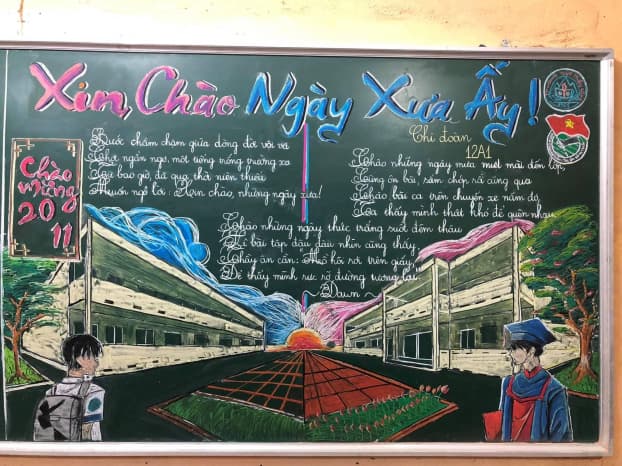 Xin Chào Ngày Xưa Ấy!
Chi đoàn
12A1
Chào
mừng
20
11
Bước chầm chậm giữa dòng đời vội vã
Chợt ngân nga, một tiếng trống trường xa
Từ bao giờ, đã qua, thời niên thiếu
Muốn ngỏ lời: Xin chào, những ngày xưa!
Chào những ngày mưa miệt mài đến lớp,
Cùng ôn bài, sấm chớp rồi cũng qua
Chào bài ca trên chuyến xe năm đó,
Ta thấy mình thật khó để quên nhau
Chào những ngày thức trắng suốt đêm thâu
Vì bài tập dẫu đau nhìn cũng thấy,
Thầy ân cần: Mồ hôi rơi trên giấy,
Để thấy mình rực rỡ đường tương lai"
~ Dawn ~